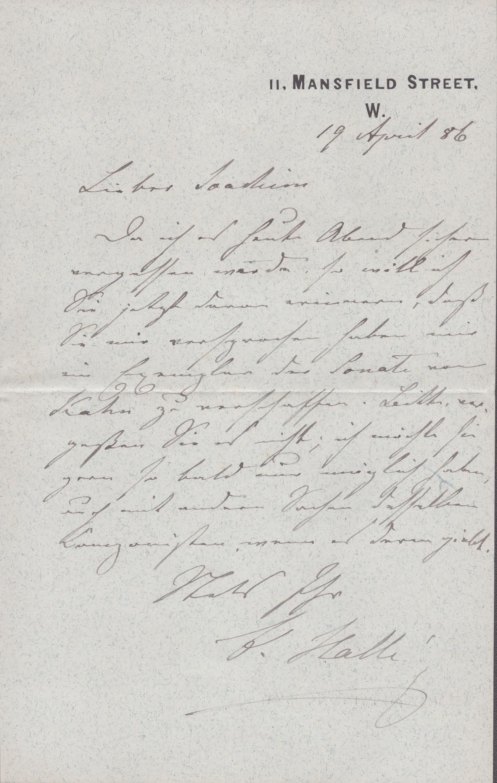 11, MANSFIELD STREET,
W.
19 April 86
Lieber Joachim
Da ich es heute Abend sicher
vergessen werde, so will ich
Sie jetzt daran erinnern, daß
Sie mir versprochen haben mir
ein Exemplar der Sonate von
Kahn zu verschaffen. Bitte, ver-
geßen Sie es nicht; ich möchte sie
gern so bald nur möglich haben,
auch mit andern Sachen desselben
Componisten, wenn es deren giebt.
Stets Ihr
C. Hallé